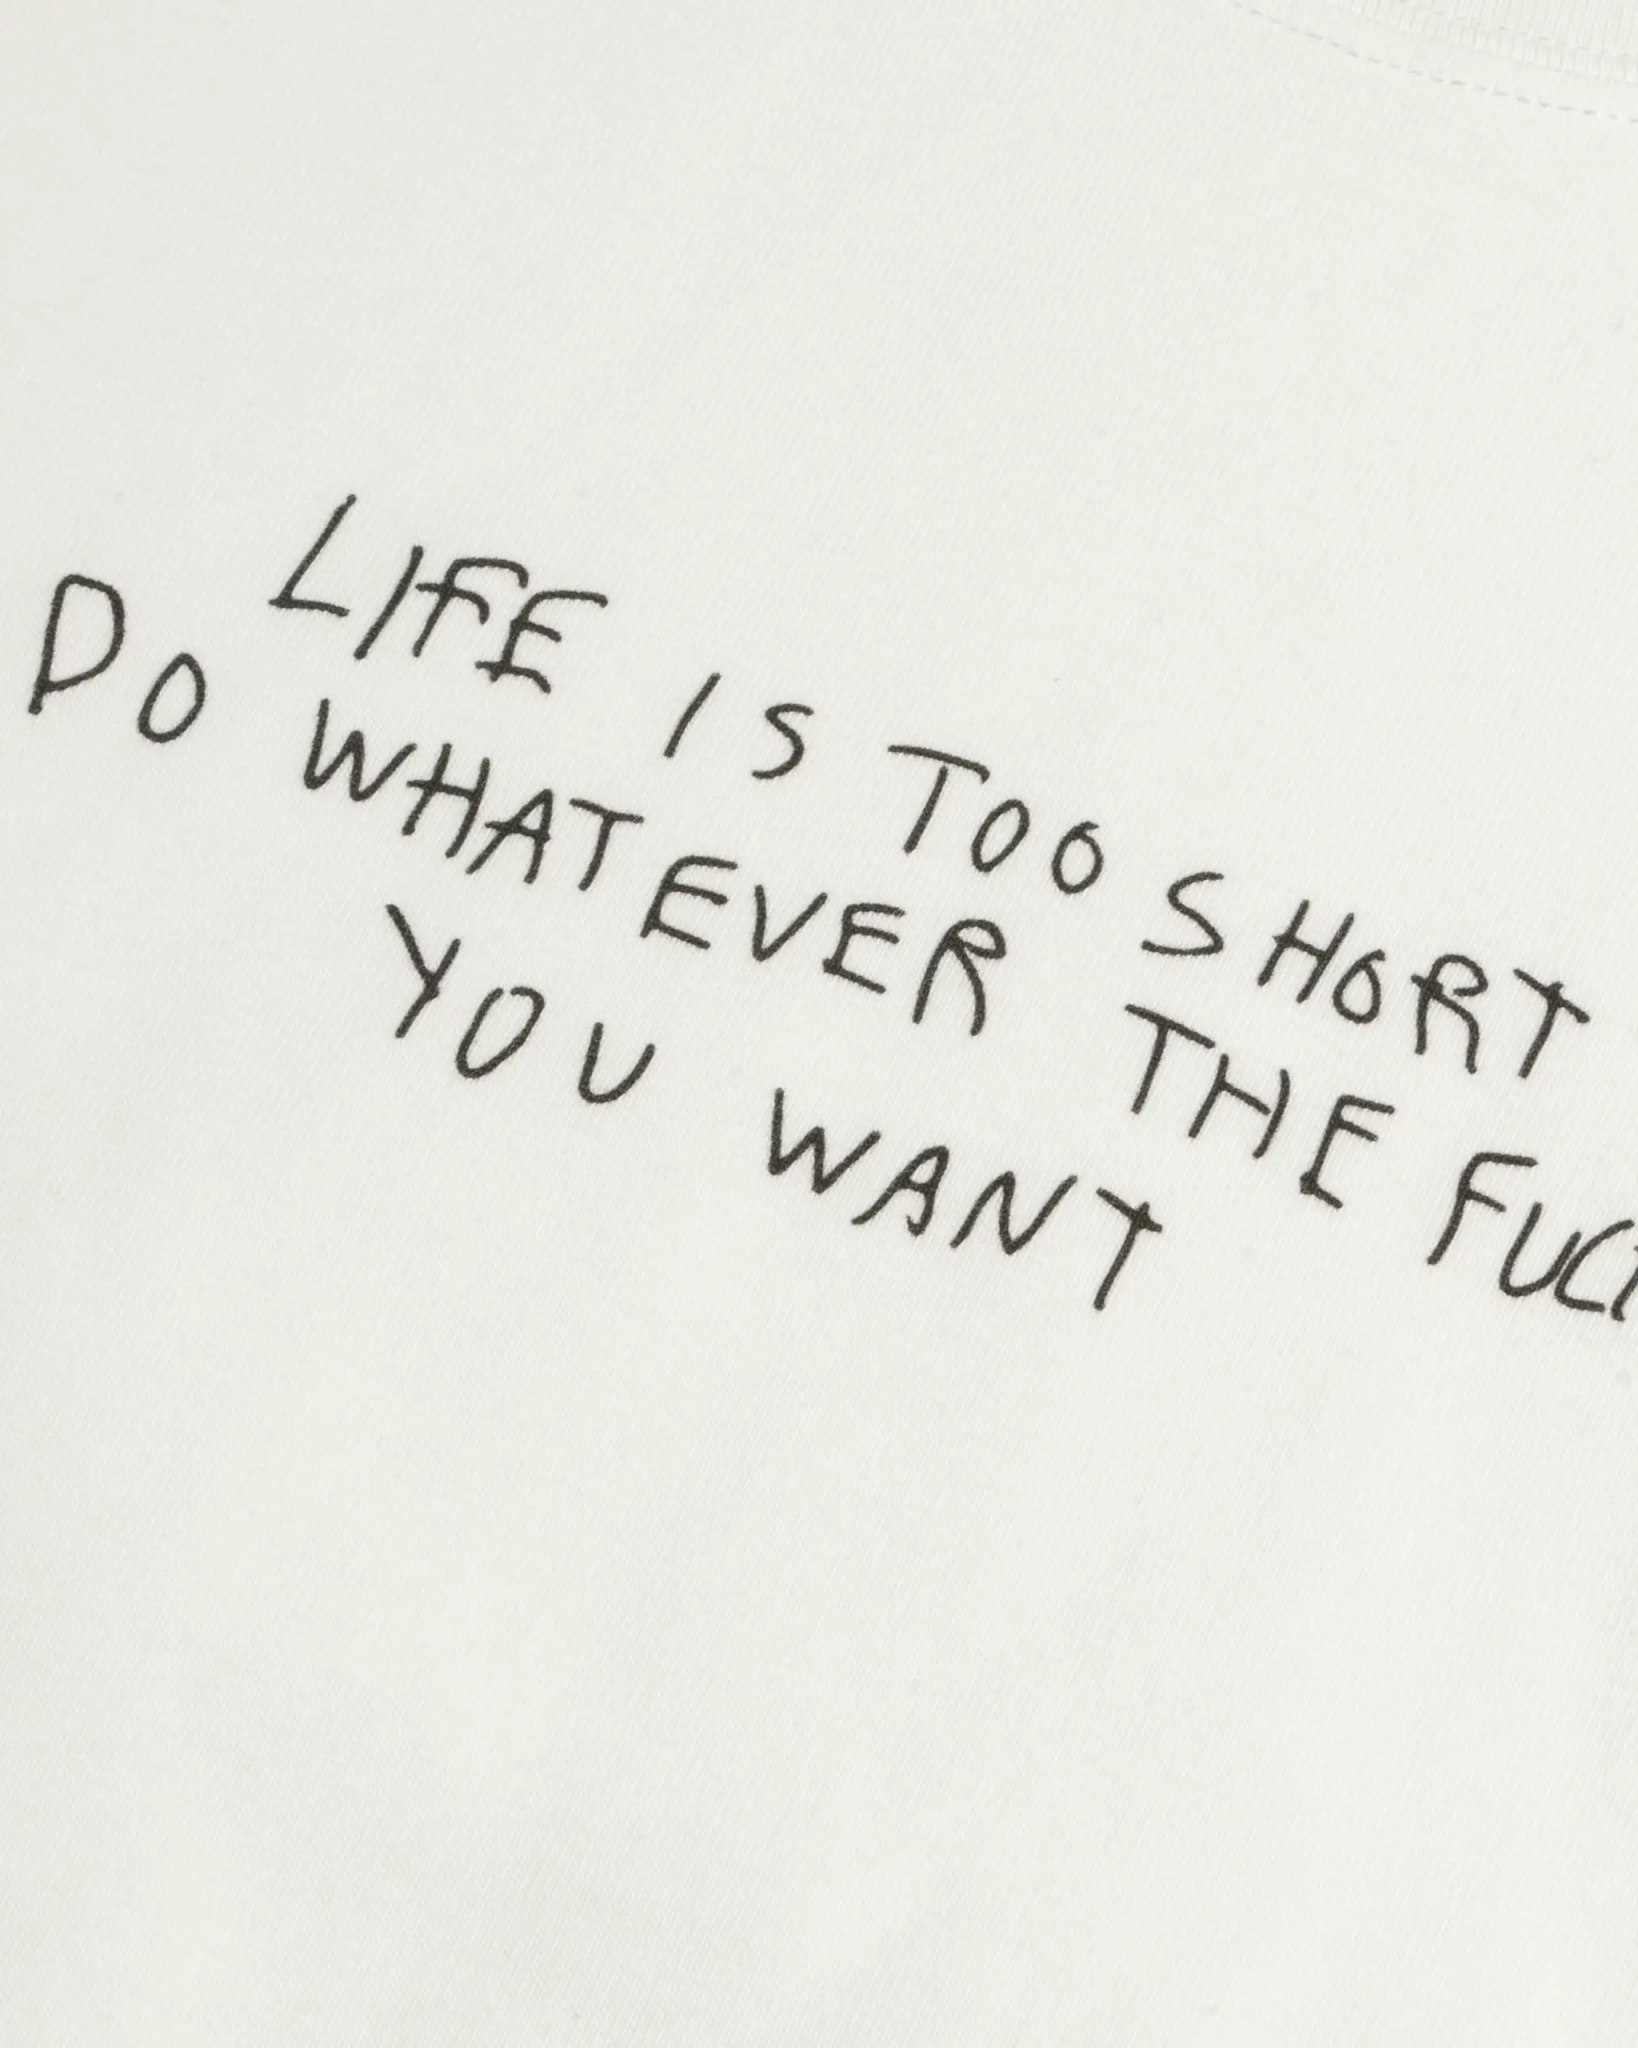 LIFE IS TOO SHORT
DO WHATEVER THE FUCK
YOU WANT